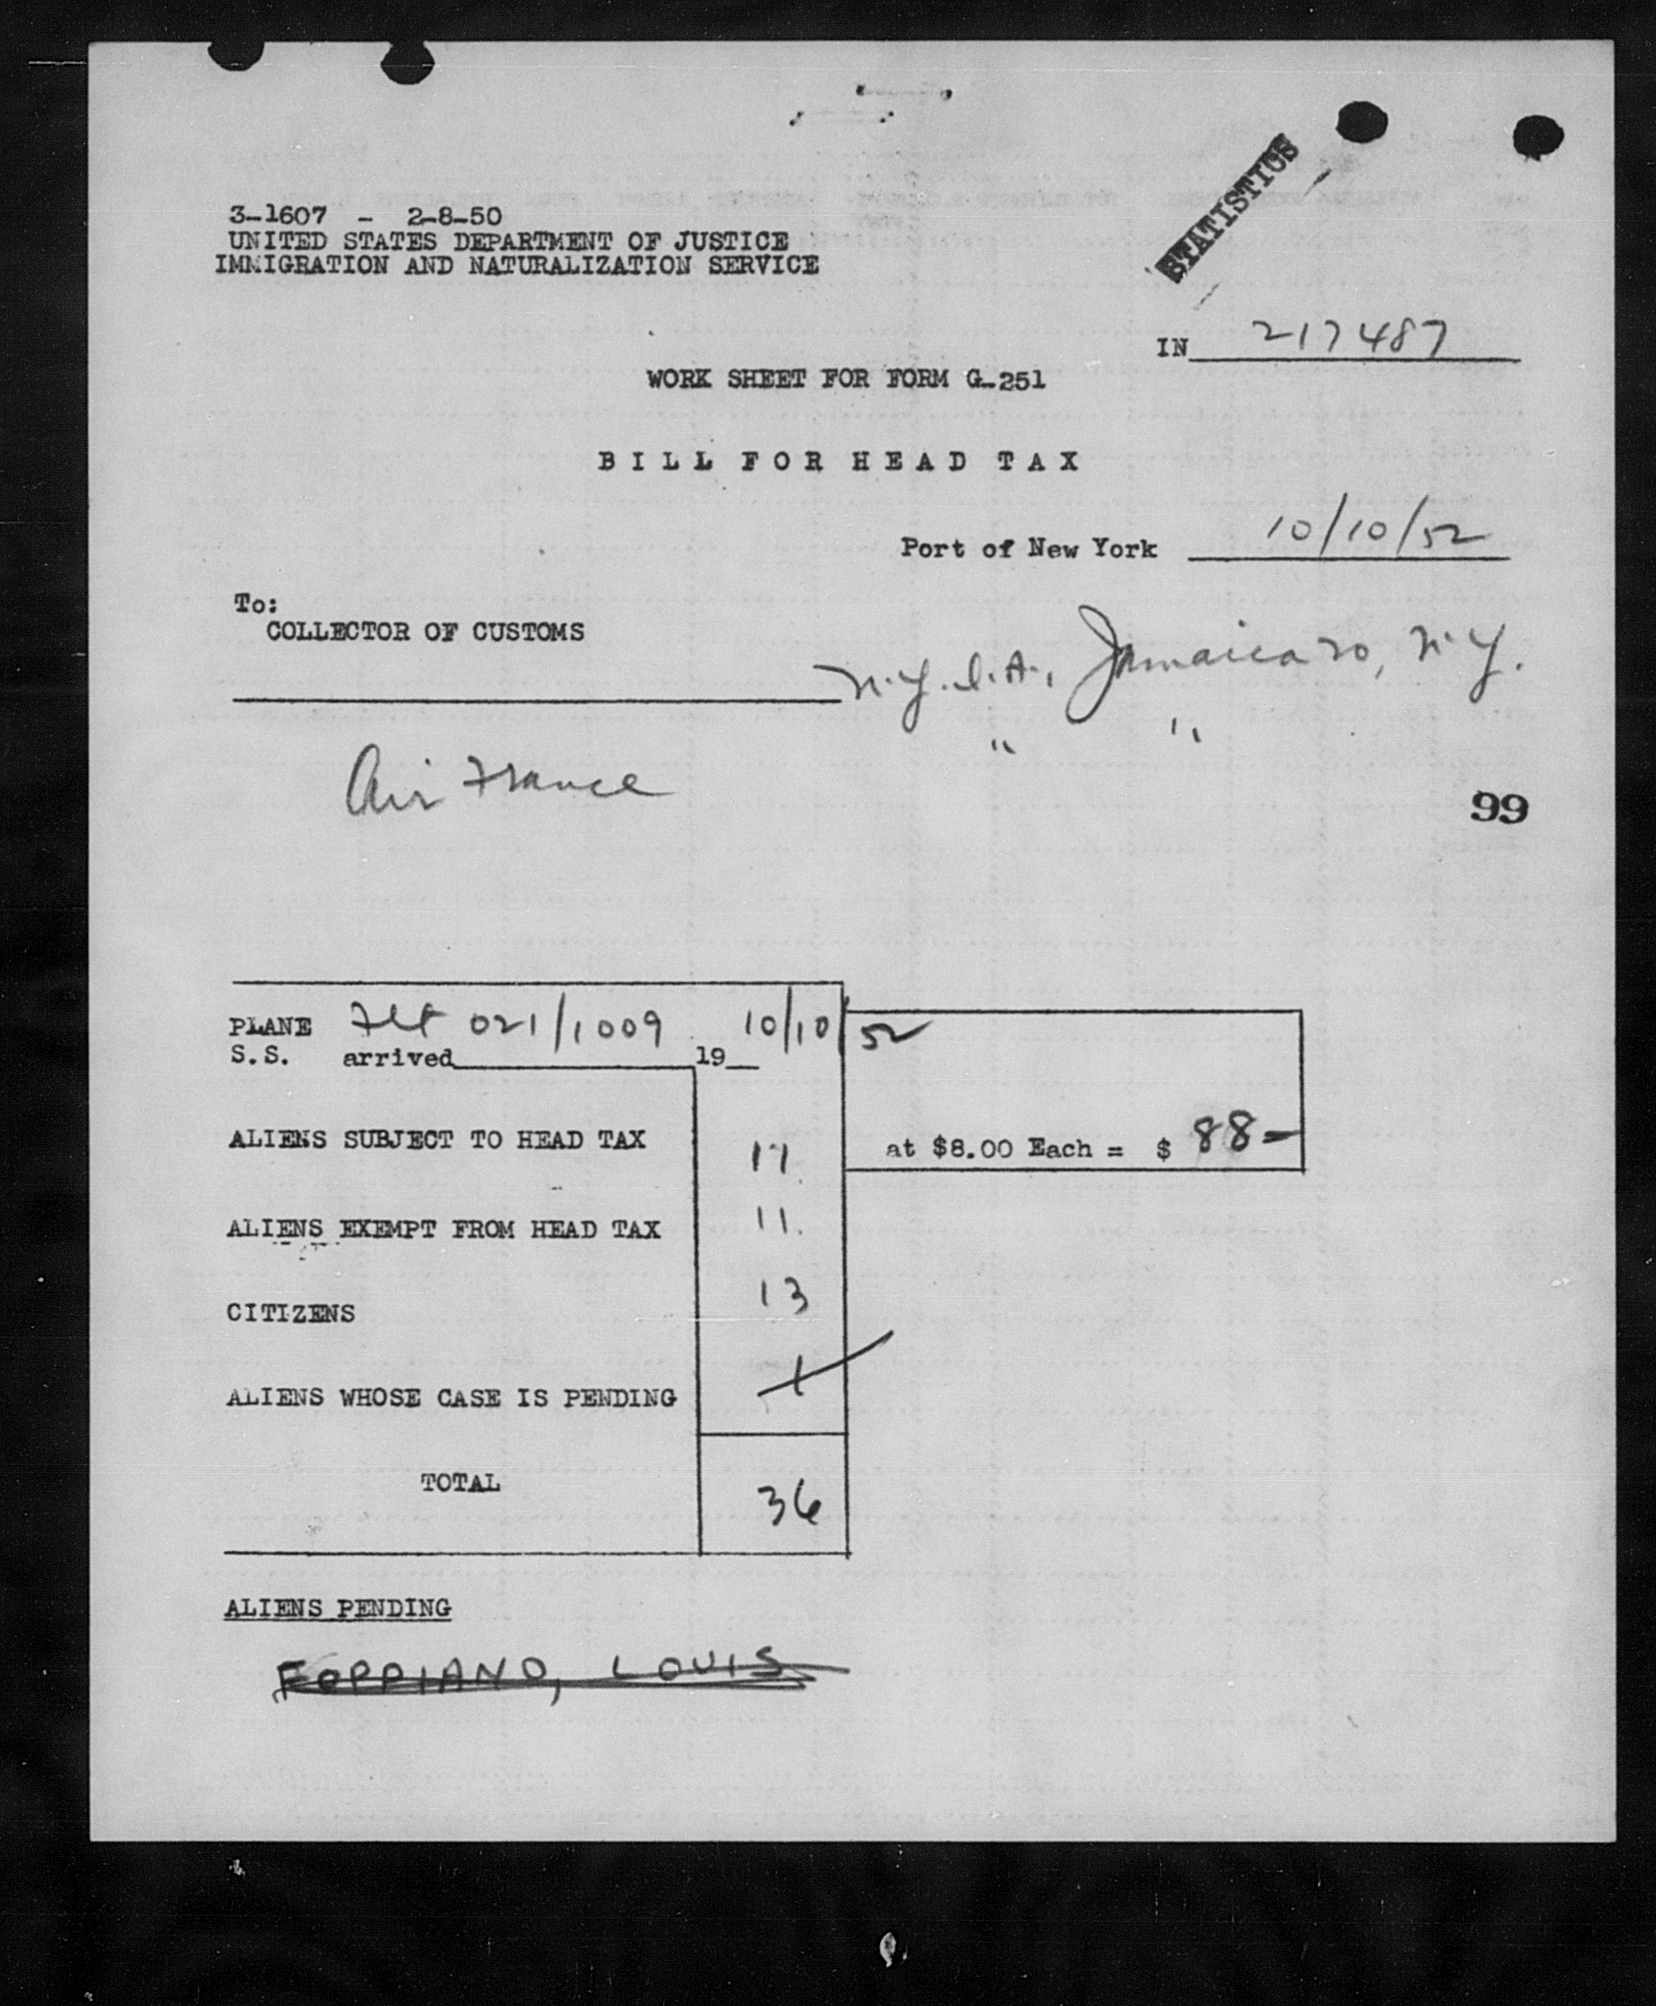 STATISTICS
3-1607 - 2-8-50
UNITED STATES DEPARTMENT OF JUSTICE
IMMIGRATION AND NATURALIZATION SERVICE
IN 217487
WORK SHEET FOR FORM G-251
BILL FOR HEAD TAX
Port of New York 10/10/52
To:
COLLECTOR OF CUSTOMS
N.Y.I.A., Jamaica 20, N.Y.
" "
Air France
99
PLANE Flt 021/1009 10/10/52
S.S. arrived 19
ALIENS SUBJECT TO HEAD TAX 11 at $8.00 Each = $ 88-
ALIENS EXEMPT FROM HEAD TAX 11
CITIZENS 13
ALIENS WHOSE CASE IS PENDING 1
TOTAL 36
ALIENS PENDING
FOPPIANO, LOUIS